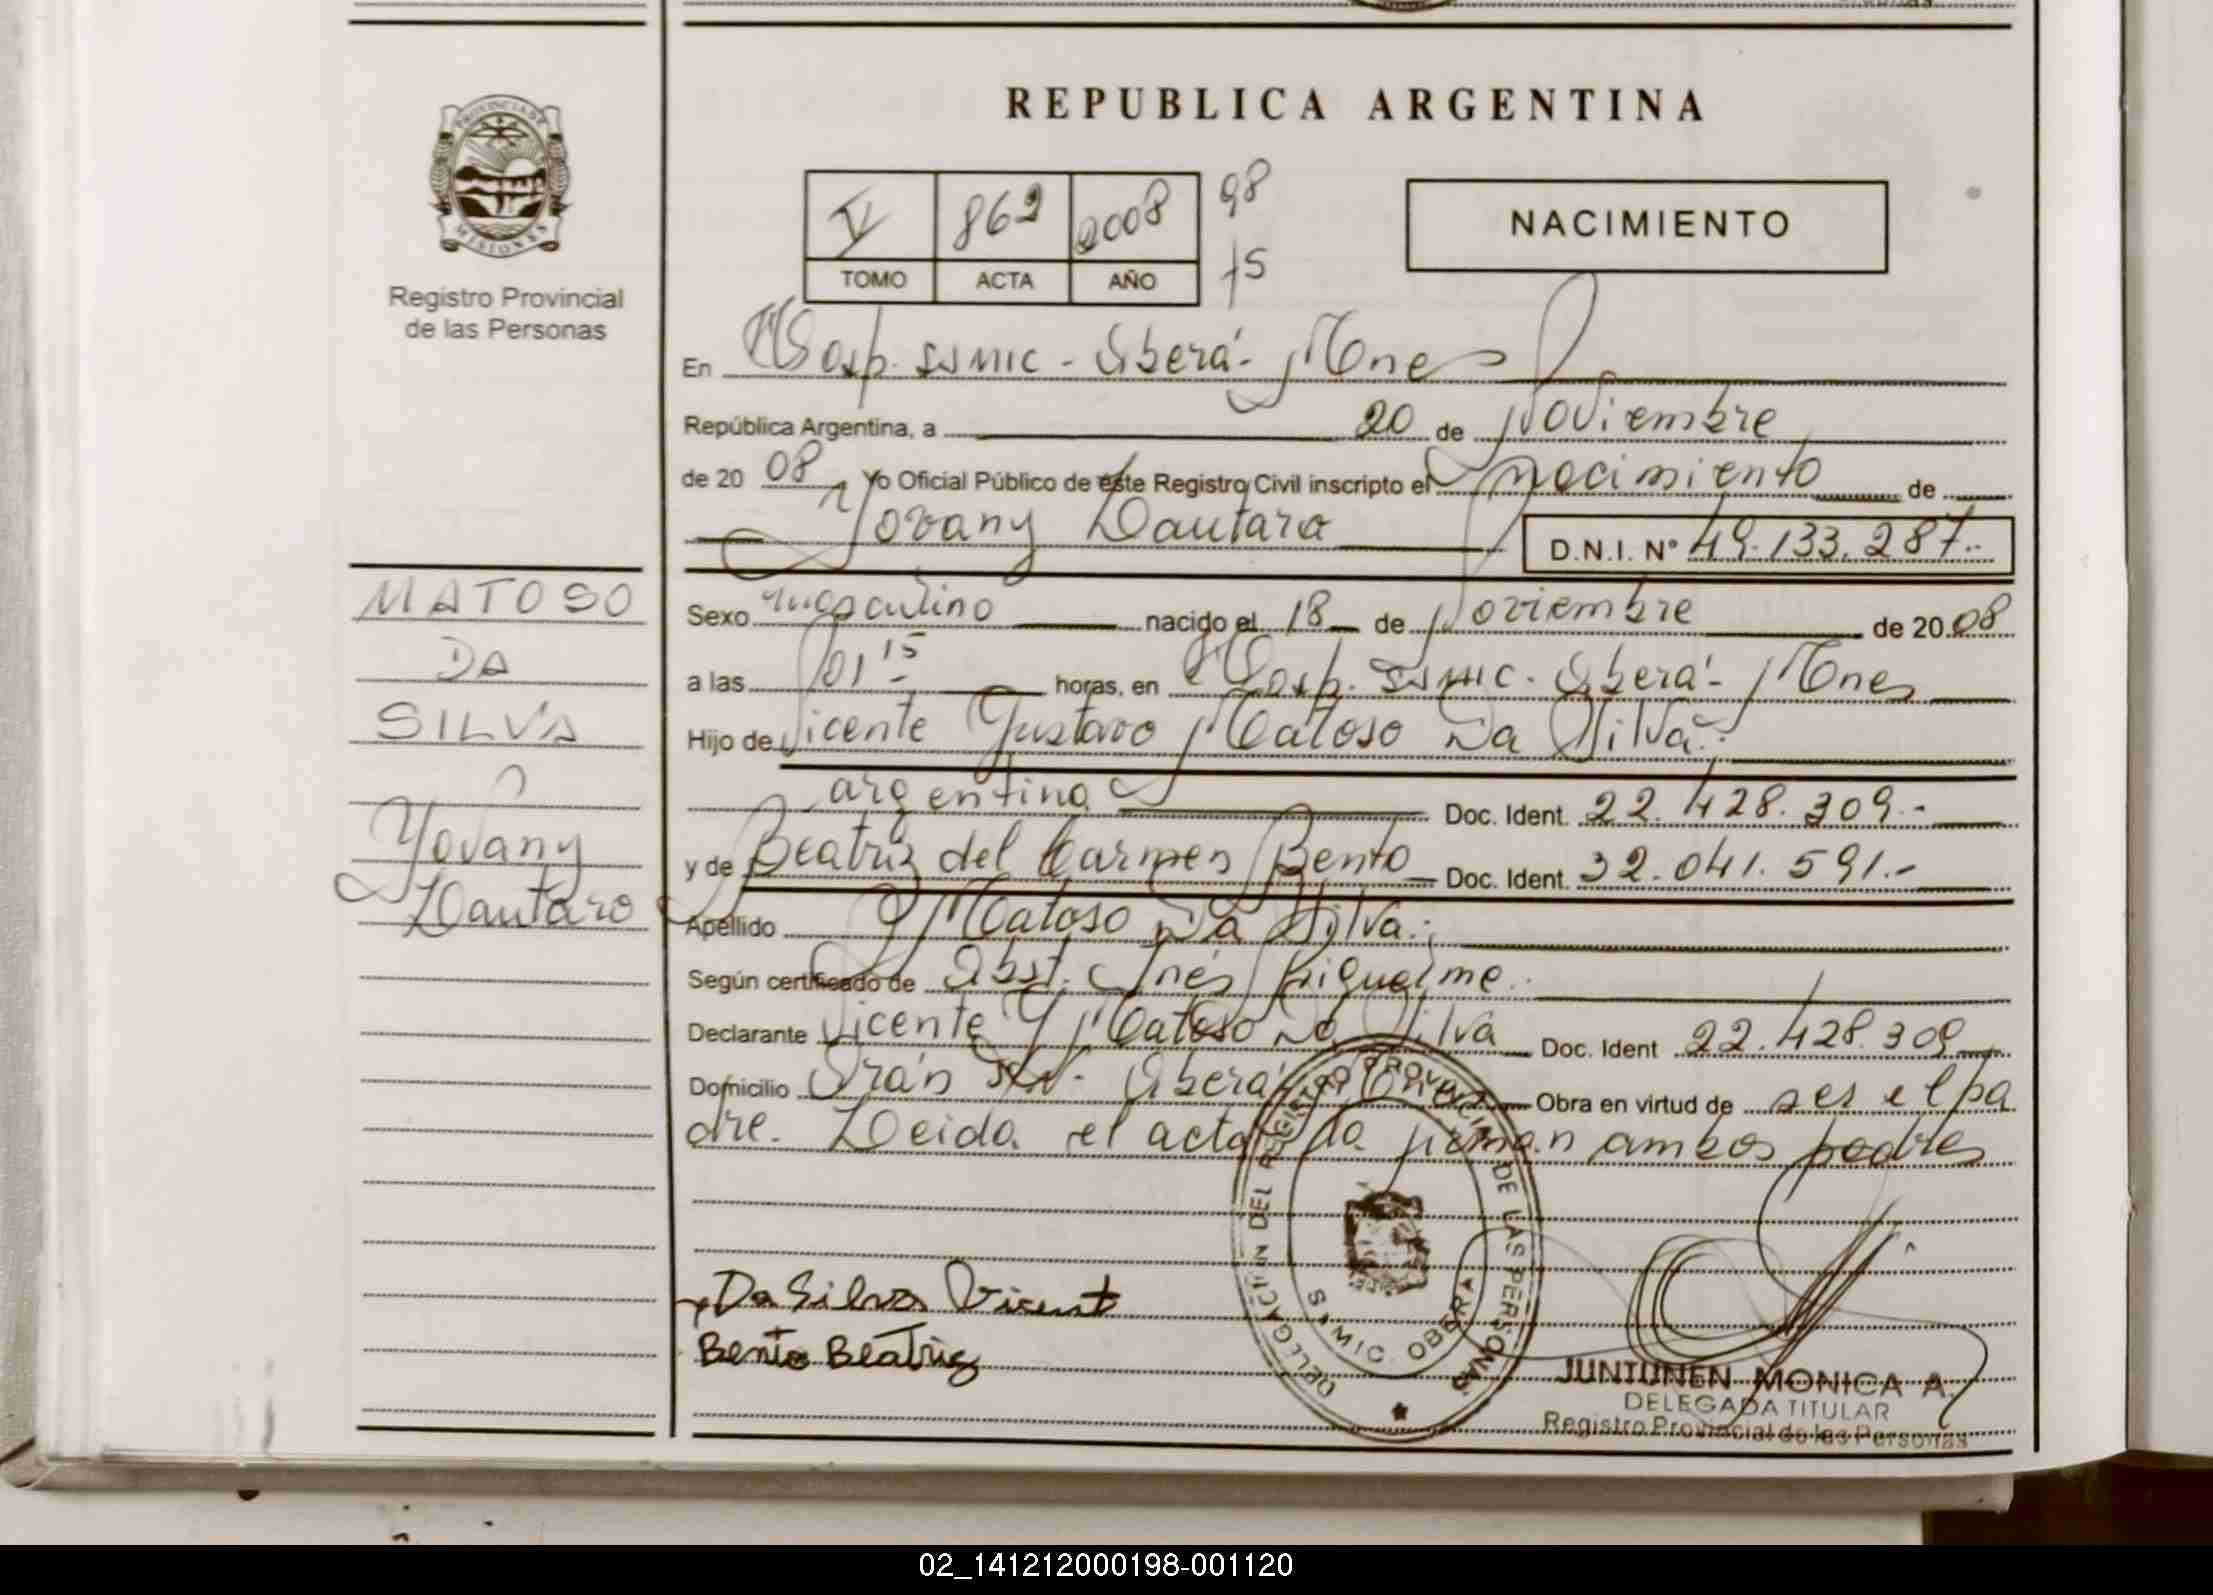 REPUBLICA ARGENTINA
PROVINCIA DE
MISIONES
Registro Provincial
de las Personas
V 862 2008 98
TOMO ACTA AÑO 75
NACIMIENTO
En Hosp. SSMIC - Oberá - Mnes
República Argentina, a 20 de Noviembre
de 20 08 Yo Oficial Público de este Registro Civil inscripto el nacimiento de
Yovany Lautaro D.N.I. N° 49.133.287.-
MATOSO
DA
SILVA
Yovany
Lautaro
Sexo masculino nacido el 18 de Noviembre de 20 08
a las 01 15 horas, en Hosp. SSMIC - Oberá - Mnes
Hijo de Vicente Gustavo Matoso Da Silva.-
argentino Doc. Ident. 22.428.309.-
y de Beatriz del Carmen Bento Doc. Ident. 32.041.591.-
Apellido Matoso Da Silva.-
Según certificado de Obst. Inés Riquelme.
Declarante Vicente G Matoso Da Silva Doc. Ident 22.428.309
Domicilio Orán SN. Oberá Mnes Obra en virtud de ser el pa
dre. Leida el acta la firman ambos padres
Da Silva Vicent
Bento Beatriz
DELEGACION DEL REGISTRO PROVINCIAL DE LAS PERSONAS
SAMIC OBERA
JUNTUNEN MONICA A.
DELEGADA TITULAR
Registro Provincial de las Personas
02_141212000198-001120